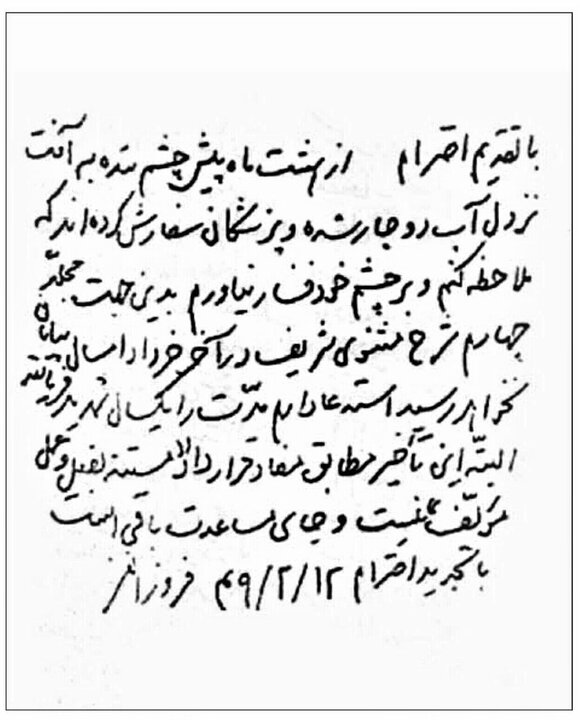 با تقدیم احترام از هشت ماه پیش چشم بنده به آفت
نزول آب دوچار شده و پزشکان سفارش کرده‌اند که
ملاحظه کنم و بر چشم خود فشار نیاورم بدین جهت مجلّد
چهارم شرح مثنوی شریف در آخر خرداد امسال بپایان
نخواهد رسید استدعا دارم مدّت را یکسال تمدید فرمایند
البتّه این تأخیر مطابق مفاد قرارداد مستند بفعل و عمل
مؤلّف نیست و جای مساعدت باقی است
با تجدید احترام ۴۹/۲/۱۲ فروزانفر